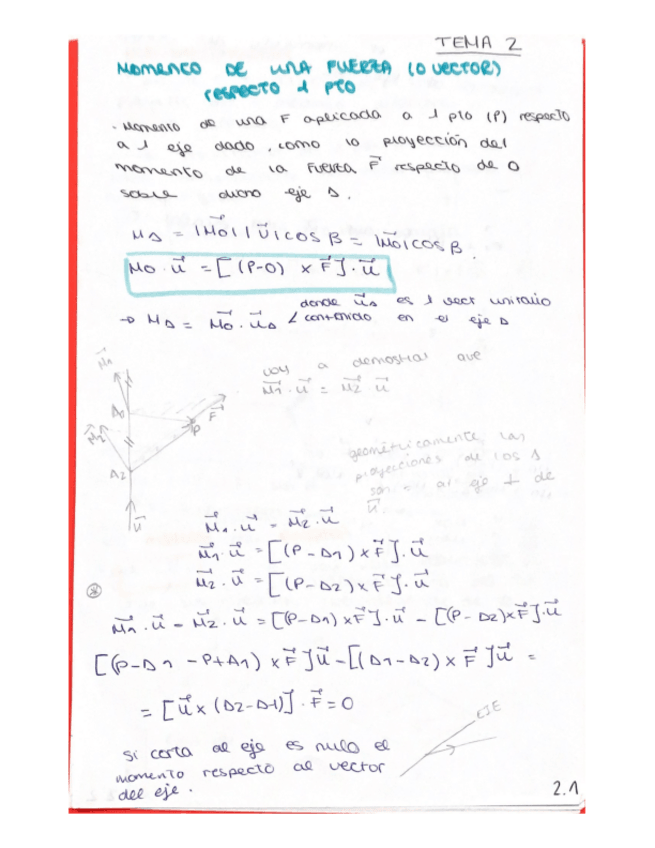 TEMA 2
MOMENTO DE UNA FUERZA (O VECTOR)
RESPECTO 1 PTO
· Momento de una F aplicada a 1 pto (P) respecto
a 1 eje dado, como la proyección del
momento de la fuerza F⃗ respecto de O
sobre dicho eje Δ.
MΔ = |M⃗o| |U⃗| cos β = |M⃗o| cos β.
Mo · u⃗ = [(P-O) × F⃗] · u⃗
→ MΔ = M⃗o · u⃗Δ
donde u⃗Δ es 1 vect unitario
contenido en el eje Δ
voy a demostrar que
M⃗1 · u⃗ = M⃗2 · u⃗
M⃗1
A1
F⃗
P
M⃗2
A2
u⃗
geométricamente las
proyecciones de los Δ
son = al eje ⊥ de
u⃗
M⃗1 · u⃗ = M⃗2 · u⃗
M⃗1 · u⃗ = [(P - Δ1) × F⃗] · u⃗
M⃗2 · u⃗ = [(P - Δ2) × F⃗] · u⃗
M⃗1 · u⃗ - M⃗2 · u⃗ = [(P-Δ1) × F⃗] · u⃗ - [(P-Δ2) × F⃗] · u⃗
[(P-Δ1 -P+Δ1) × F⃗] u⃗ - [(Δ1-Δ2) × F⃗] u⃗ =
= [u⃗ × (Δ2-Δ1)] · F⃗ = 0
EJE
Si corta al eje es nulo el
momento respecto al vector
del eje.
2.1